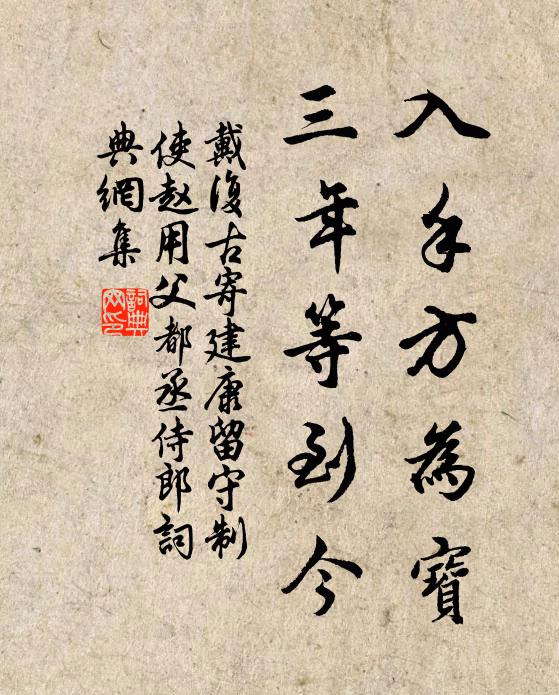 入手方為寶
三年等到今
戴復古寄建康留守制
使赵用父都丞侍郎詞
典網集
詞典
网印